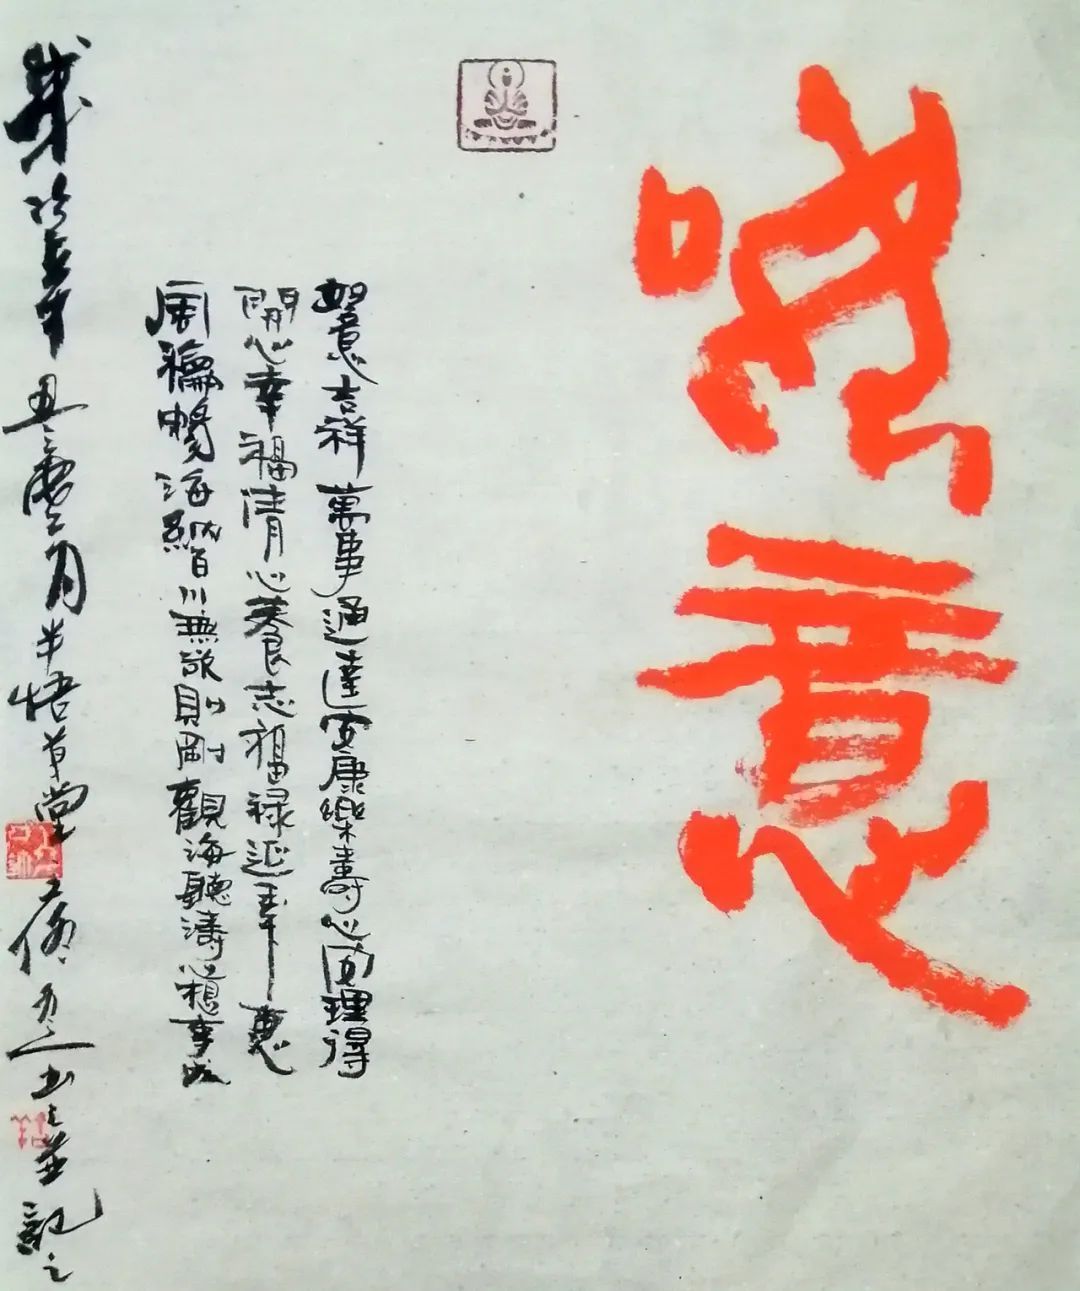 如意
如意吉祥萬事通達安康樂壽心安理得
開心幸福清心養志福祿延年惠
風暢海納百川無欲則剛觀海聽濤心想事成
歲次辛丑 月半悟草堂 書並記之